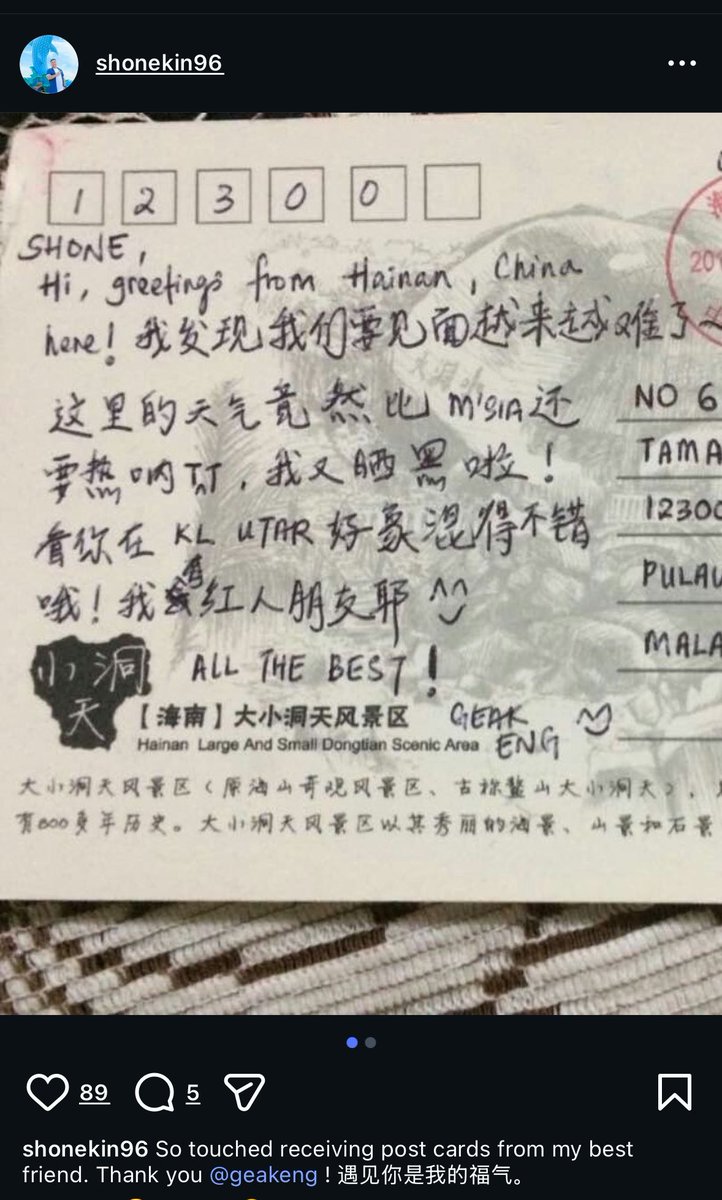 shonekin96
1 2 3 0 0
SHONE,
Hi, greetings from Hainan, China
here! 我发现我们要见面越来越难了~
这里的天气竟然比 M'SIA 还
要热呐 T_T, 我又晒黑啦!
看你在 KL UTAR 好象混得不错
哦! 我有红人朋友耶 ^^
ALL THE BEST!
GEAK
ENG
NO 6
TAMA
12300
PULAU
MALA
201
小洞
天
【海南】大小洞天风景区
Hainan Large And Small Dongtian Scenic Area
大小洞天风景区（原海山奇观风景区、古称鳌山大小洞天），
有800多年历史。大小洞天风景区以其秀丽的海景、山景和石景
89 5
shonekin96 So touched receiving post cards from my best
friend. Thank you @geakeng ! 遇见你是我的福气。